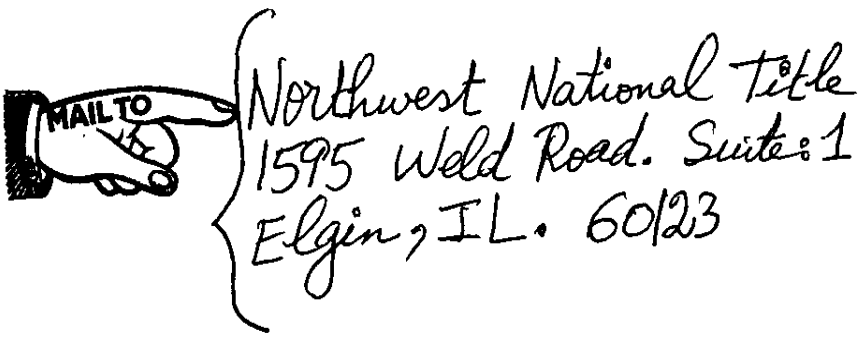 MAIL TO
Northwest National Title
1595 Weld Road. Suite: 1
Elgin, IL. 60123